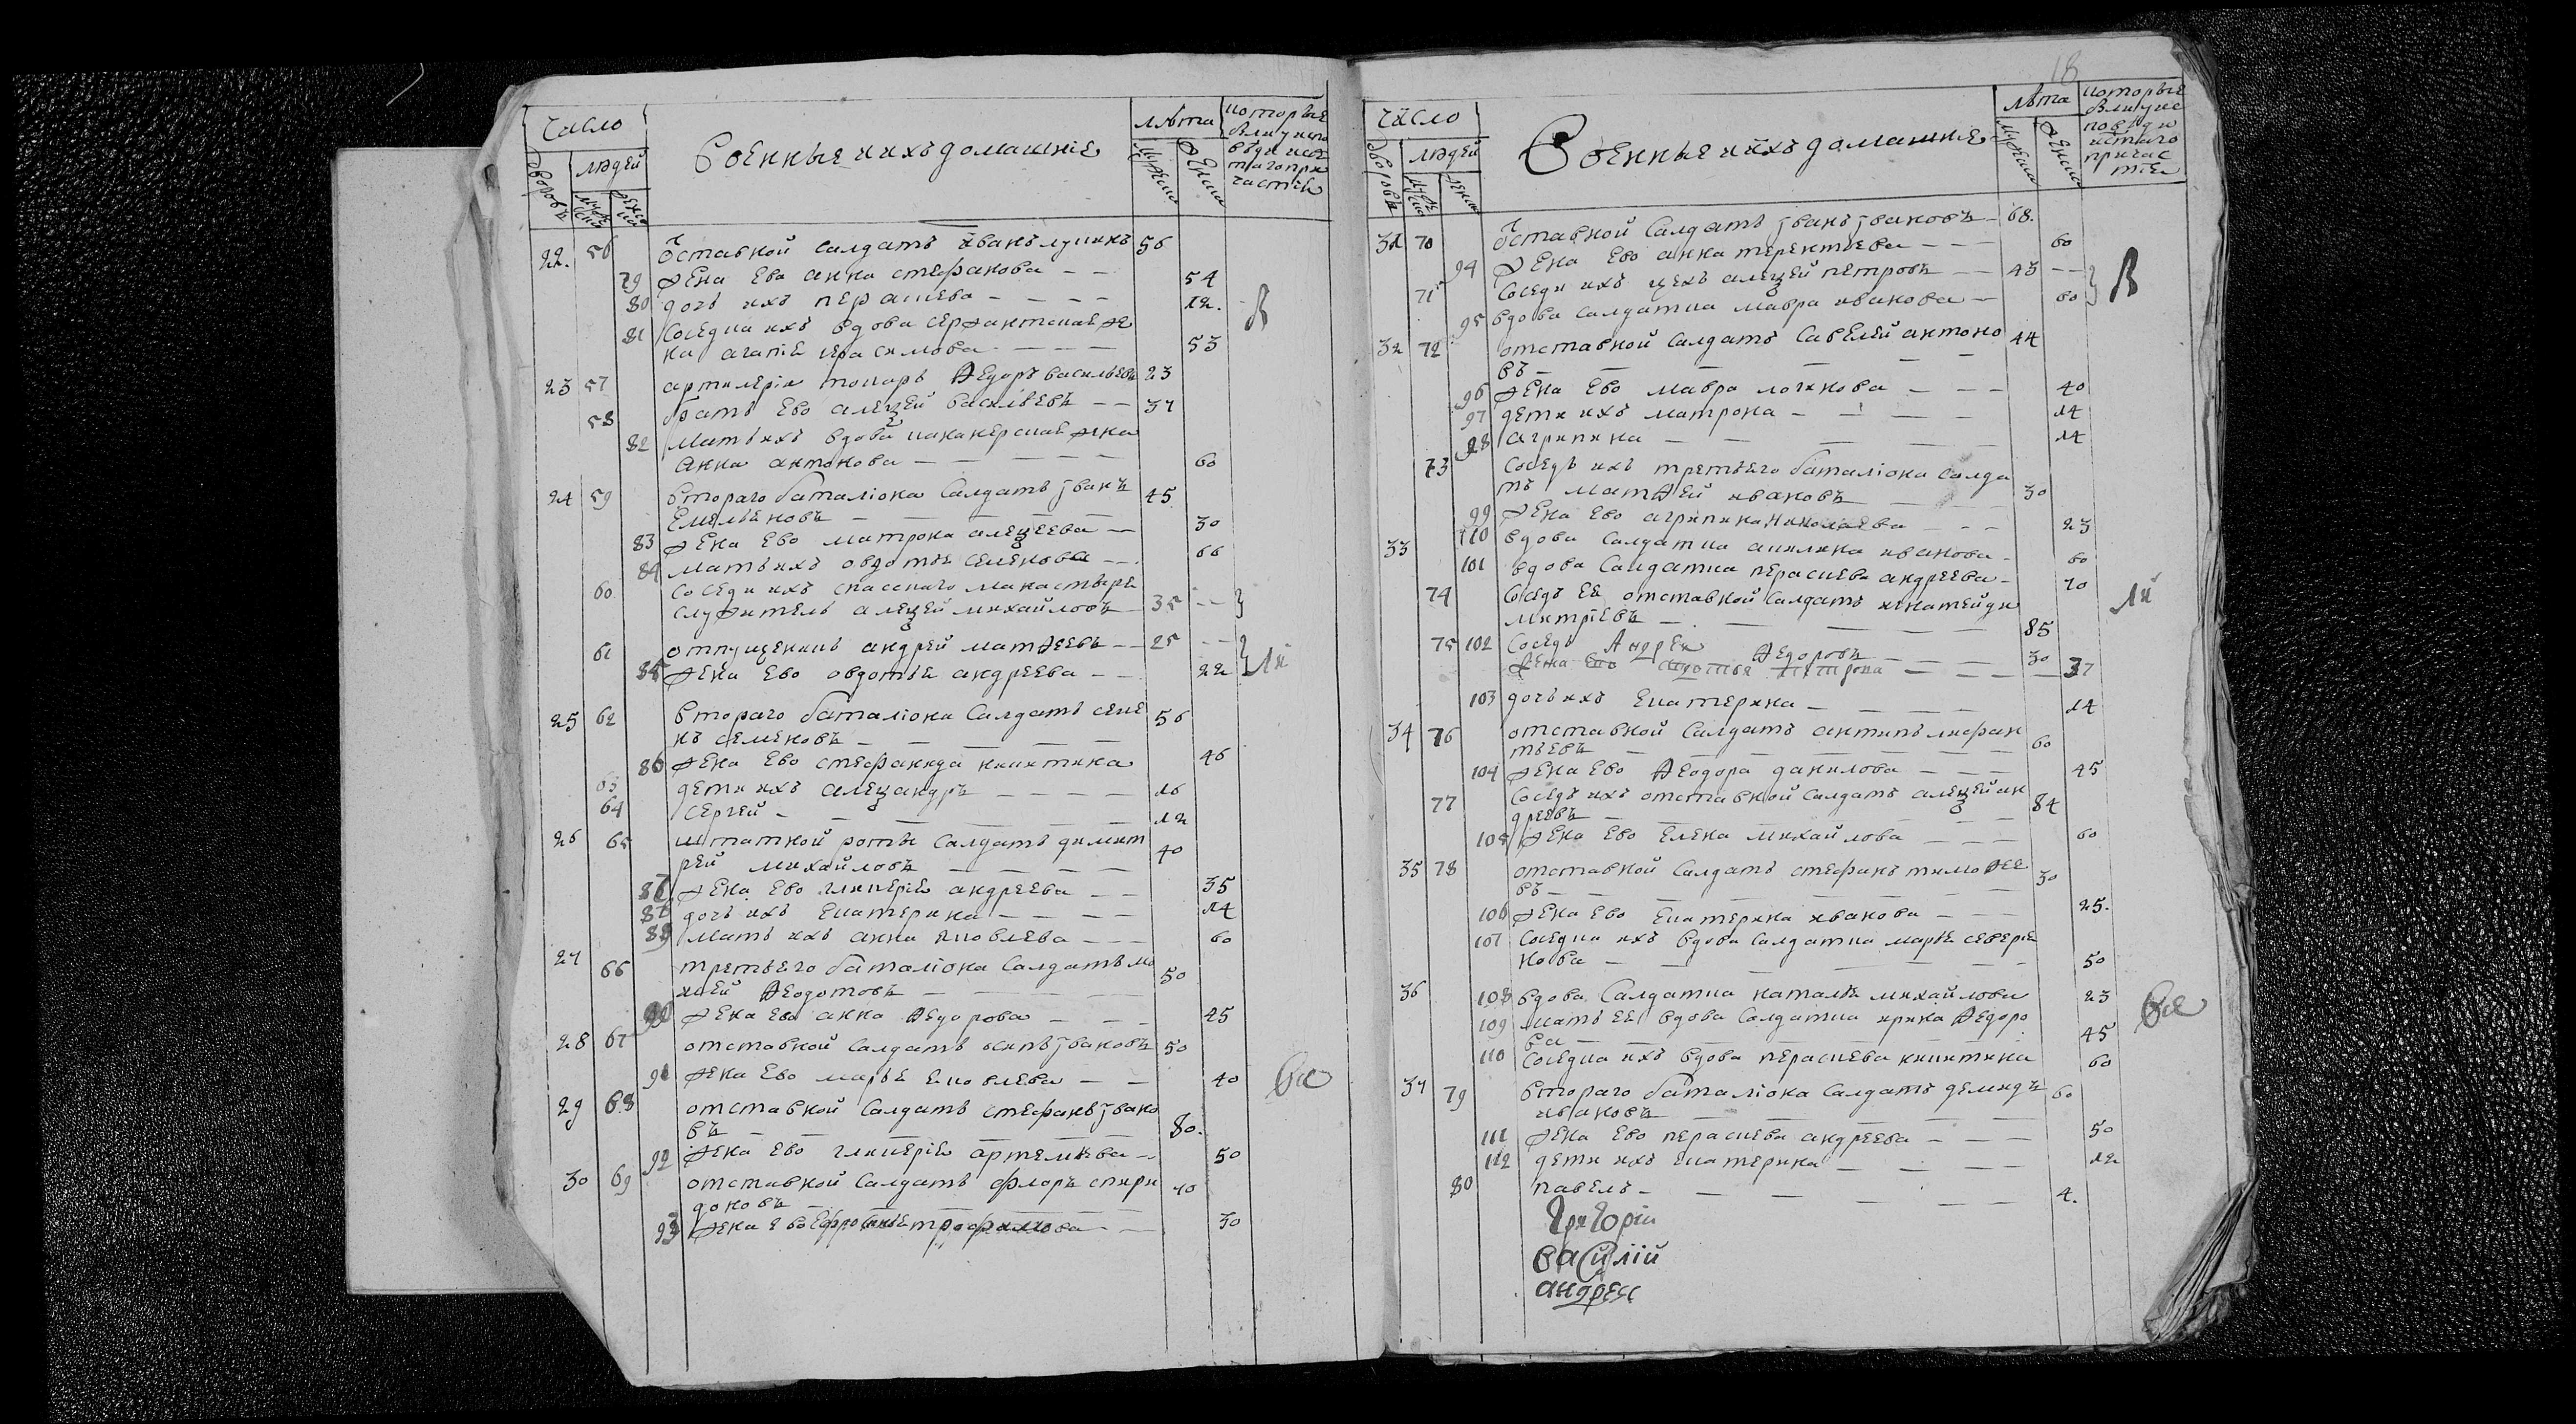 Число
Военные и ихъ домашніе
лѣта
которые
дворовъ
людей
22. 56 Отставной салдатъ иванъ лукинъ 56
79 Жена ево анна стефанова 54
80 дочь ихъ параскева 12.
81 Соседка ихъ вдова сержантская же
на агапія герасимова 53
23 57 артилеріи токарь Ѳедоръ васильевъ 23
58 братъ ево алеѯей васильевъ 31
82 Мать ихъ вдова канонерская жена
анна антонова 60
24 59 втораго баталіона Салдатъ іванъ 45
Емельяновъ
83 Жена ево матрона алеѯеева 30
84 Мать ихъ овдотья семенова 66
60 Соседи ихъ спасскаго манастыря
служитель алеѯей михайловъ 35
61 отпущенникъ андрей матѳеевъ 25
85 Жена ево овдотья андреева 22
25 62 втораго баталіона Салдатъ семе 56
нъ семеновъ
86 Жена ево стефанида никитина 46
63 дети ихъ алеѯандръ 16
64 Сергей 12
26 65 штатной роты Салдатъ димит 40
рей михайловъ
87 Жена ево гликерія андреева 35
88 дочь ихъ Екатерина 14
89 Мать ихъ анна яковлева 60
27 66 третьего баталіона Салдатъ мо 50
исей Ѳеодотовъ
90 Жена ево анна Ѳедорова 45
28 67 отставной Салдатъ осипъ івановъ 50
91 Жена ево марья яковлева 40
29 68 отставной Салдатъ стефанъ івано
въ 80.
92 Жена ево гликерія артемьева 50
30 69 отставной Салдатъ флоръ спири 40
доновъ
93 Жена ево Ефросинья трофимова 30
18
Число
Военные и ихъ домашніе
лѣта
которые
дворовъ
людей
31 70 Отставной Салдатъ іванъ івановъ 68.
94 Жена ево анна терентьева 60
71 Соседи ихъ цехъ алеѯей петровъ 43
95 вдова салдатка мавра иванова 60
32 72 отставной Салдатъ Савелей антоно 44
въ
96 Жена ево мавра логинова 40
97 дети ихъ матрона 14
98 агрипина 14
73 Соседъ ихъ третьего баталіона салда
тъ матѳей ивановъ 30
99 Жена ево агрипина Николаева 23
33 100 вдова Салдатка акилина иванова 60
101 вдова Салдатка параскева андреева 70
74 Соседъ ея отставной Салдатъ игнатей ди
митріевъ 85
75 102 Соседъ Андрей Ѳедоровъ 30
Жена Ево 37
103 дочь ихъ Екатерина 14
34 76 отставной Салдатъ антипъ лифан
тьевъ 60
104 Жена Ево Ѳеодора данилова 45
77 Соседъ ихъ отставной Салдатъ алеѯей ан
дреевъ 84
105 Жена Ево Елена михайлова 60
35 78 отставной Салдатъ стефанъ тимоѳее
въ 30
106 Жена Ево Екатерина иванова 25.
107 Соседка ихъ вдова салдатка марья северья
нова 50
36 108 вдова Салдатка наталья михайлова 23
109 Мать ея вдова Салдатка ирина Ѳедоро
ва 45
110 Соседка ихъ вдова параскева никитина 60
37 79 втораго баталіона Салдатъ демидъ 60
ивановъ
111 Жена ево параскева андреева 50
112 дети ихъ Екатерина 12
80 павелъ 4.
Григорій
василій
андрей